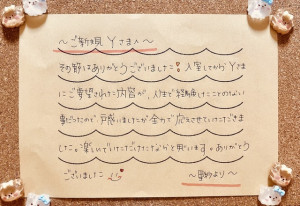 〜ご新規 Yさまへ〜
その節はありがとうございました! 入室してからYさま
にご要望された内容が、人生で経験したことのない
事だったので、戸惑いましたが全力で応えさせていただきま
した。楽しんでいただけたかなと思います。ありがとう
ございました
より〜